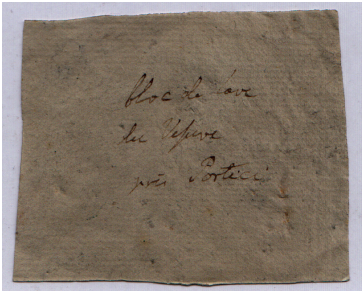 bloc de lave
du Vésuve
près Portici